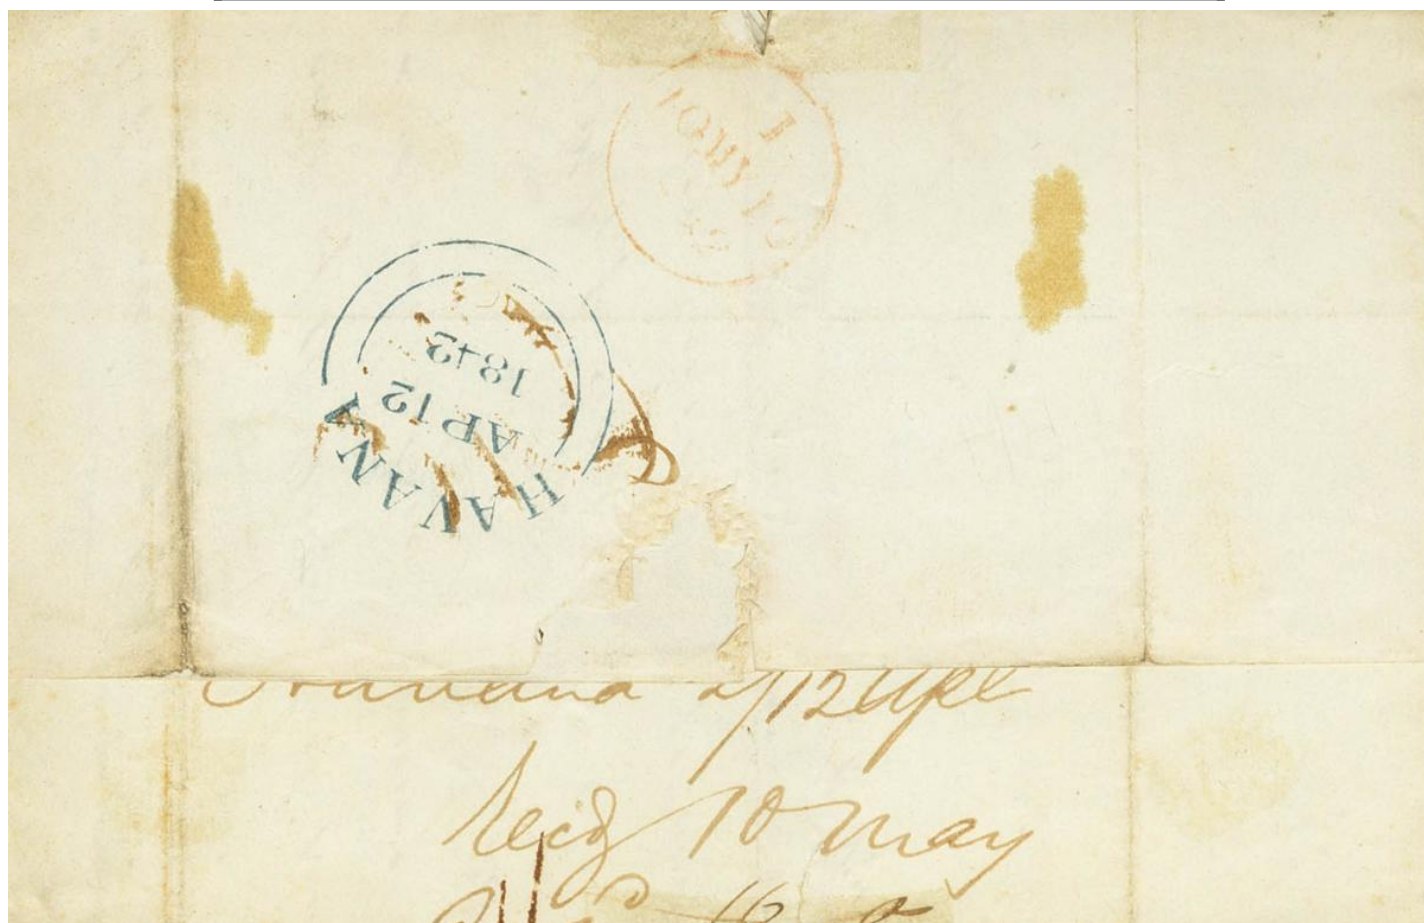 1
10MY10
1842
HAVANA
AP12
1842
Havana 2/12 Apl
Recd 10 May